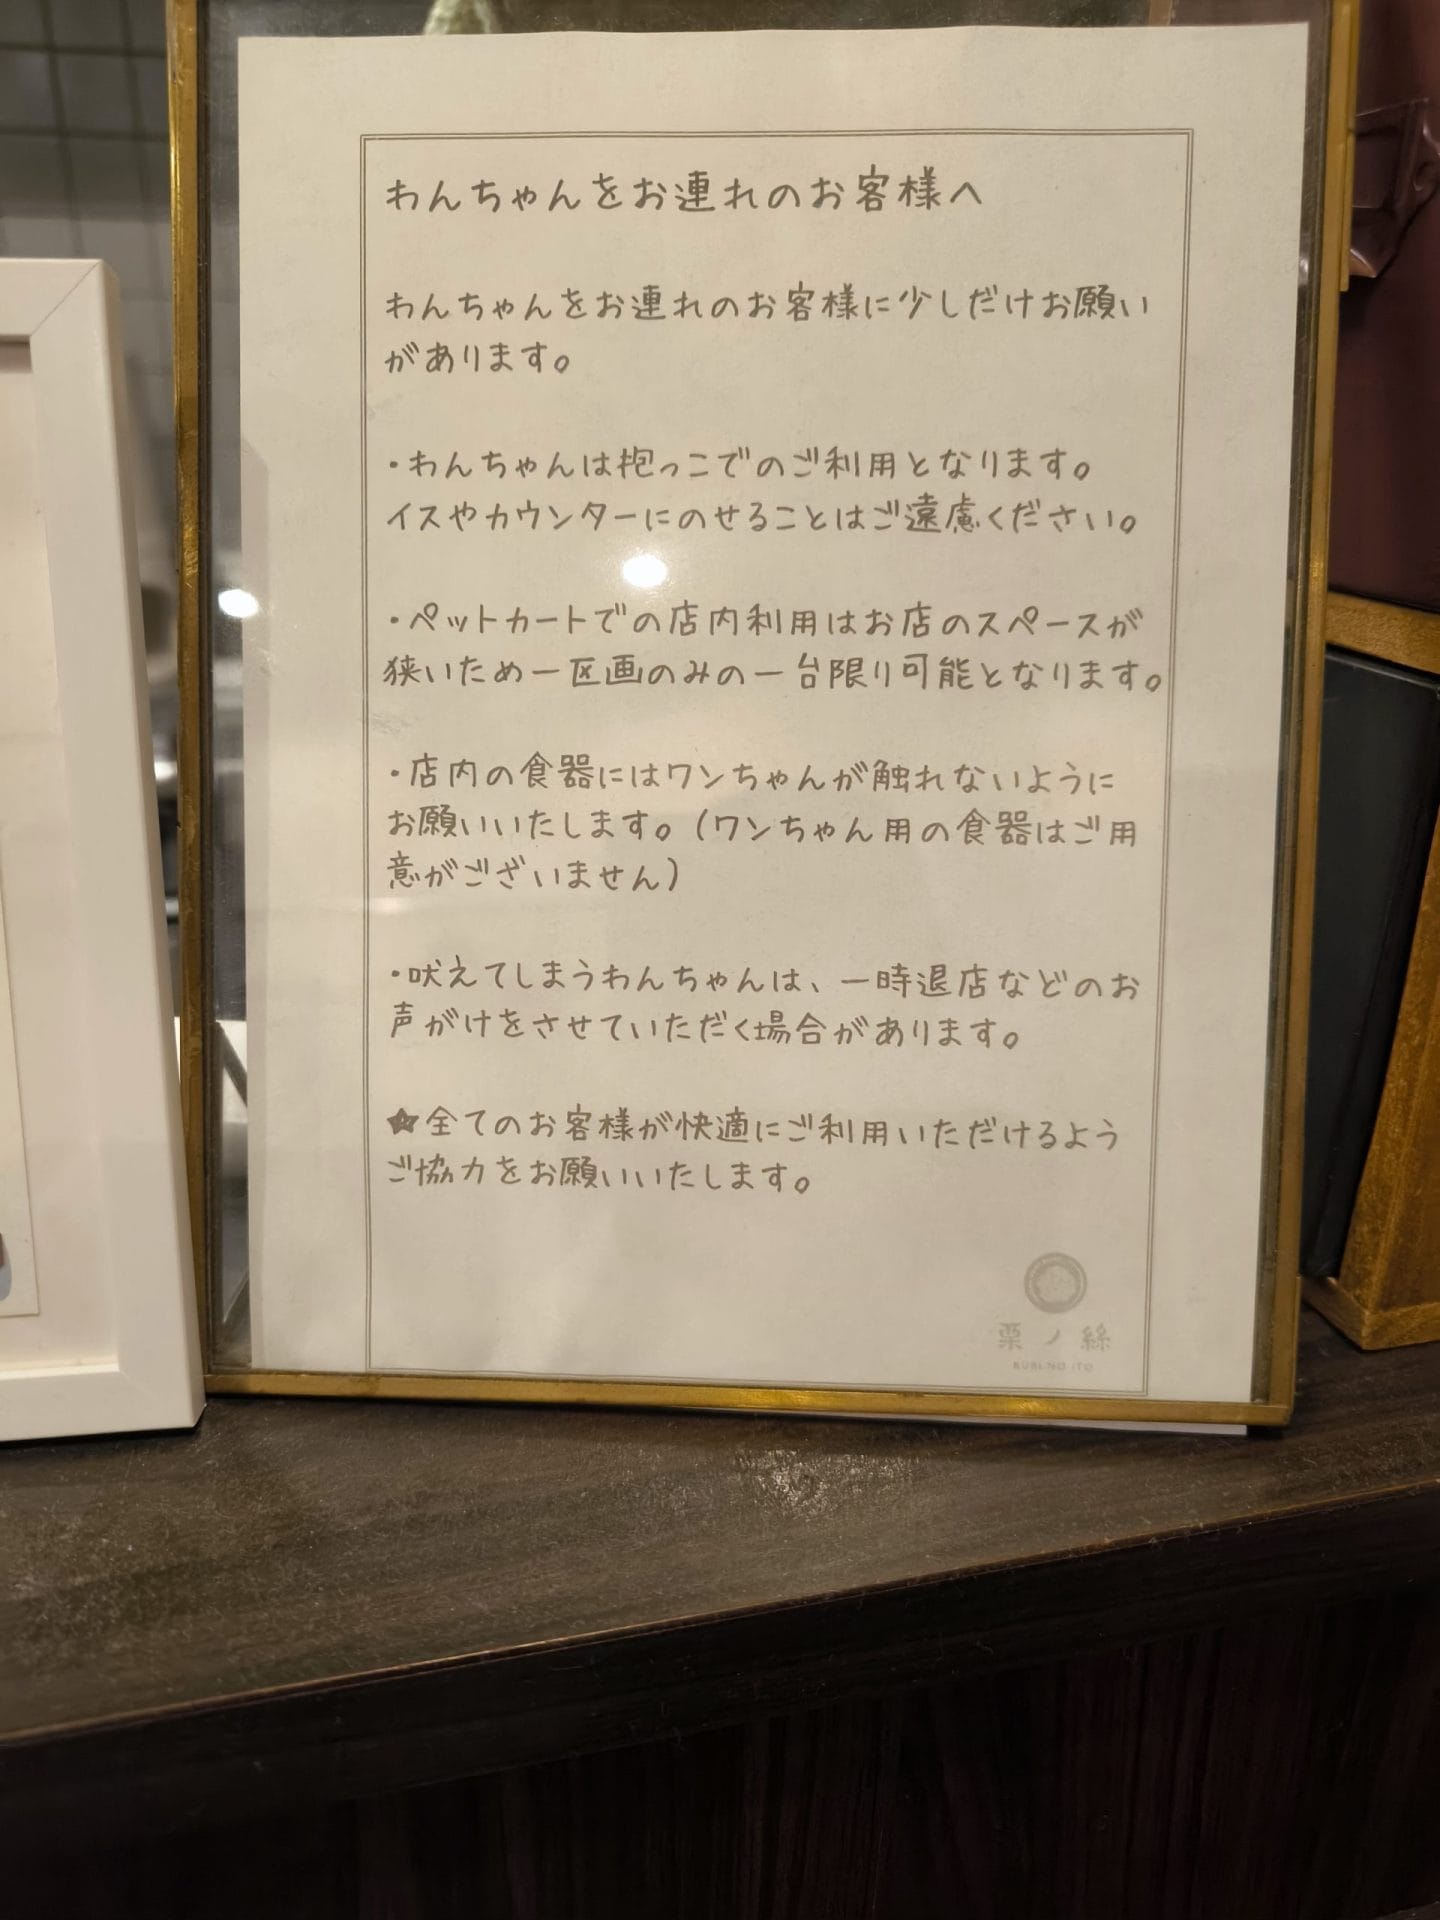 わんちゃんをお連れのお客様へ
わんちゃんをお連れのお客様に少しだけお願い
があります。
・わんちゃんは抱っこでのご利用となります。
イスやカウンターにのせることはご遠慮ください。
・ペットカートでの店内利用はお店のスペースが
狭いため一区画のみの一台限り可能となります。
・店内の食器にはワンちゃんが触れないように
お願いいたします。(ワンちゃん用の食器はご用
意がございません)
・吠えてしまうわんちゃんは、一時退店などのお
声がけをさせていただく場合があります。
★全てのお客様が快適にご利用いただけるよう
ご協力をお願いいたします。
栗ノ絲
KURI NO ITO